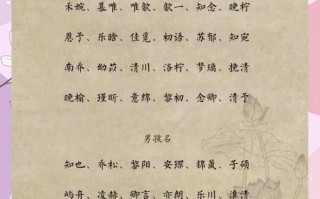 禾婉、慕唯、唯歆、歆一、知念、晚柠
恩予、乐晗、佳觅、初语、苏郁、知宛
南乔、幼苡、清川、洛柠、梦璃、挽清
晚榆、瑾昕、意绵、黎初、念卿、清予
男孩名
知也、乔松、黎阳、安璟、锦晟、子硕
屿舟、凌赫、卿言、亦朗、乐川、淮清